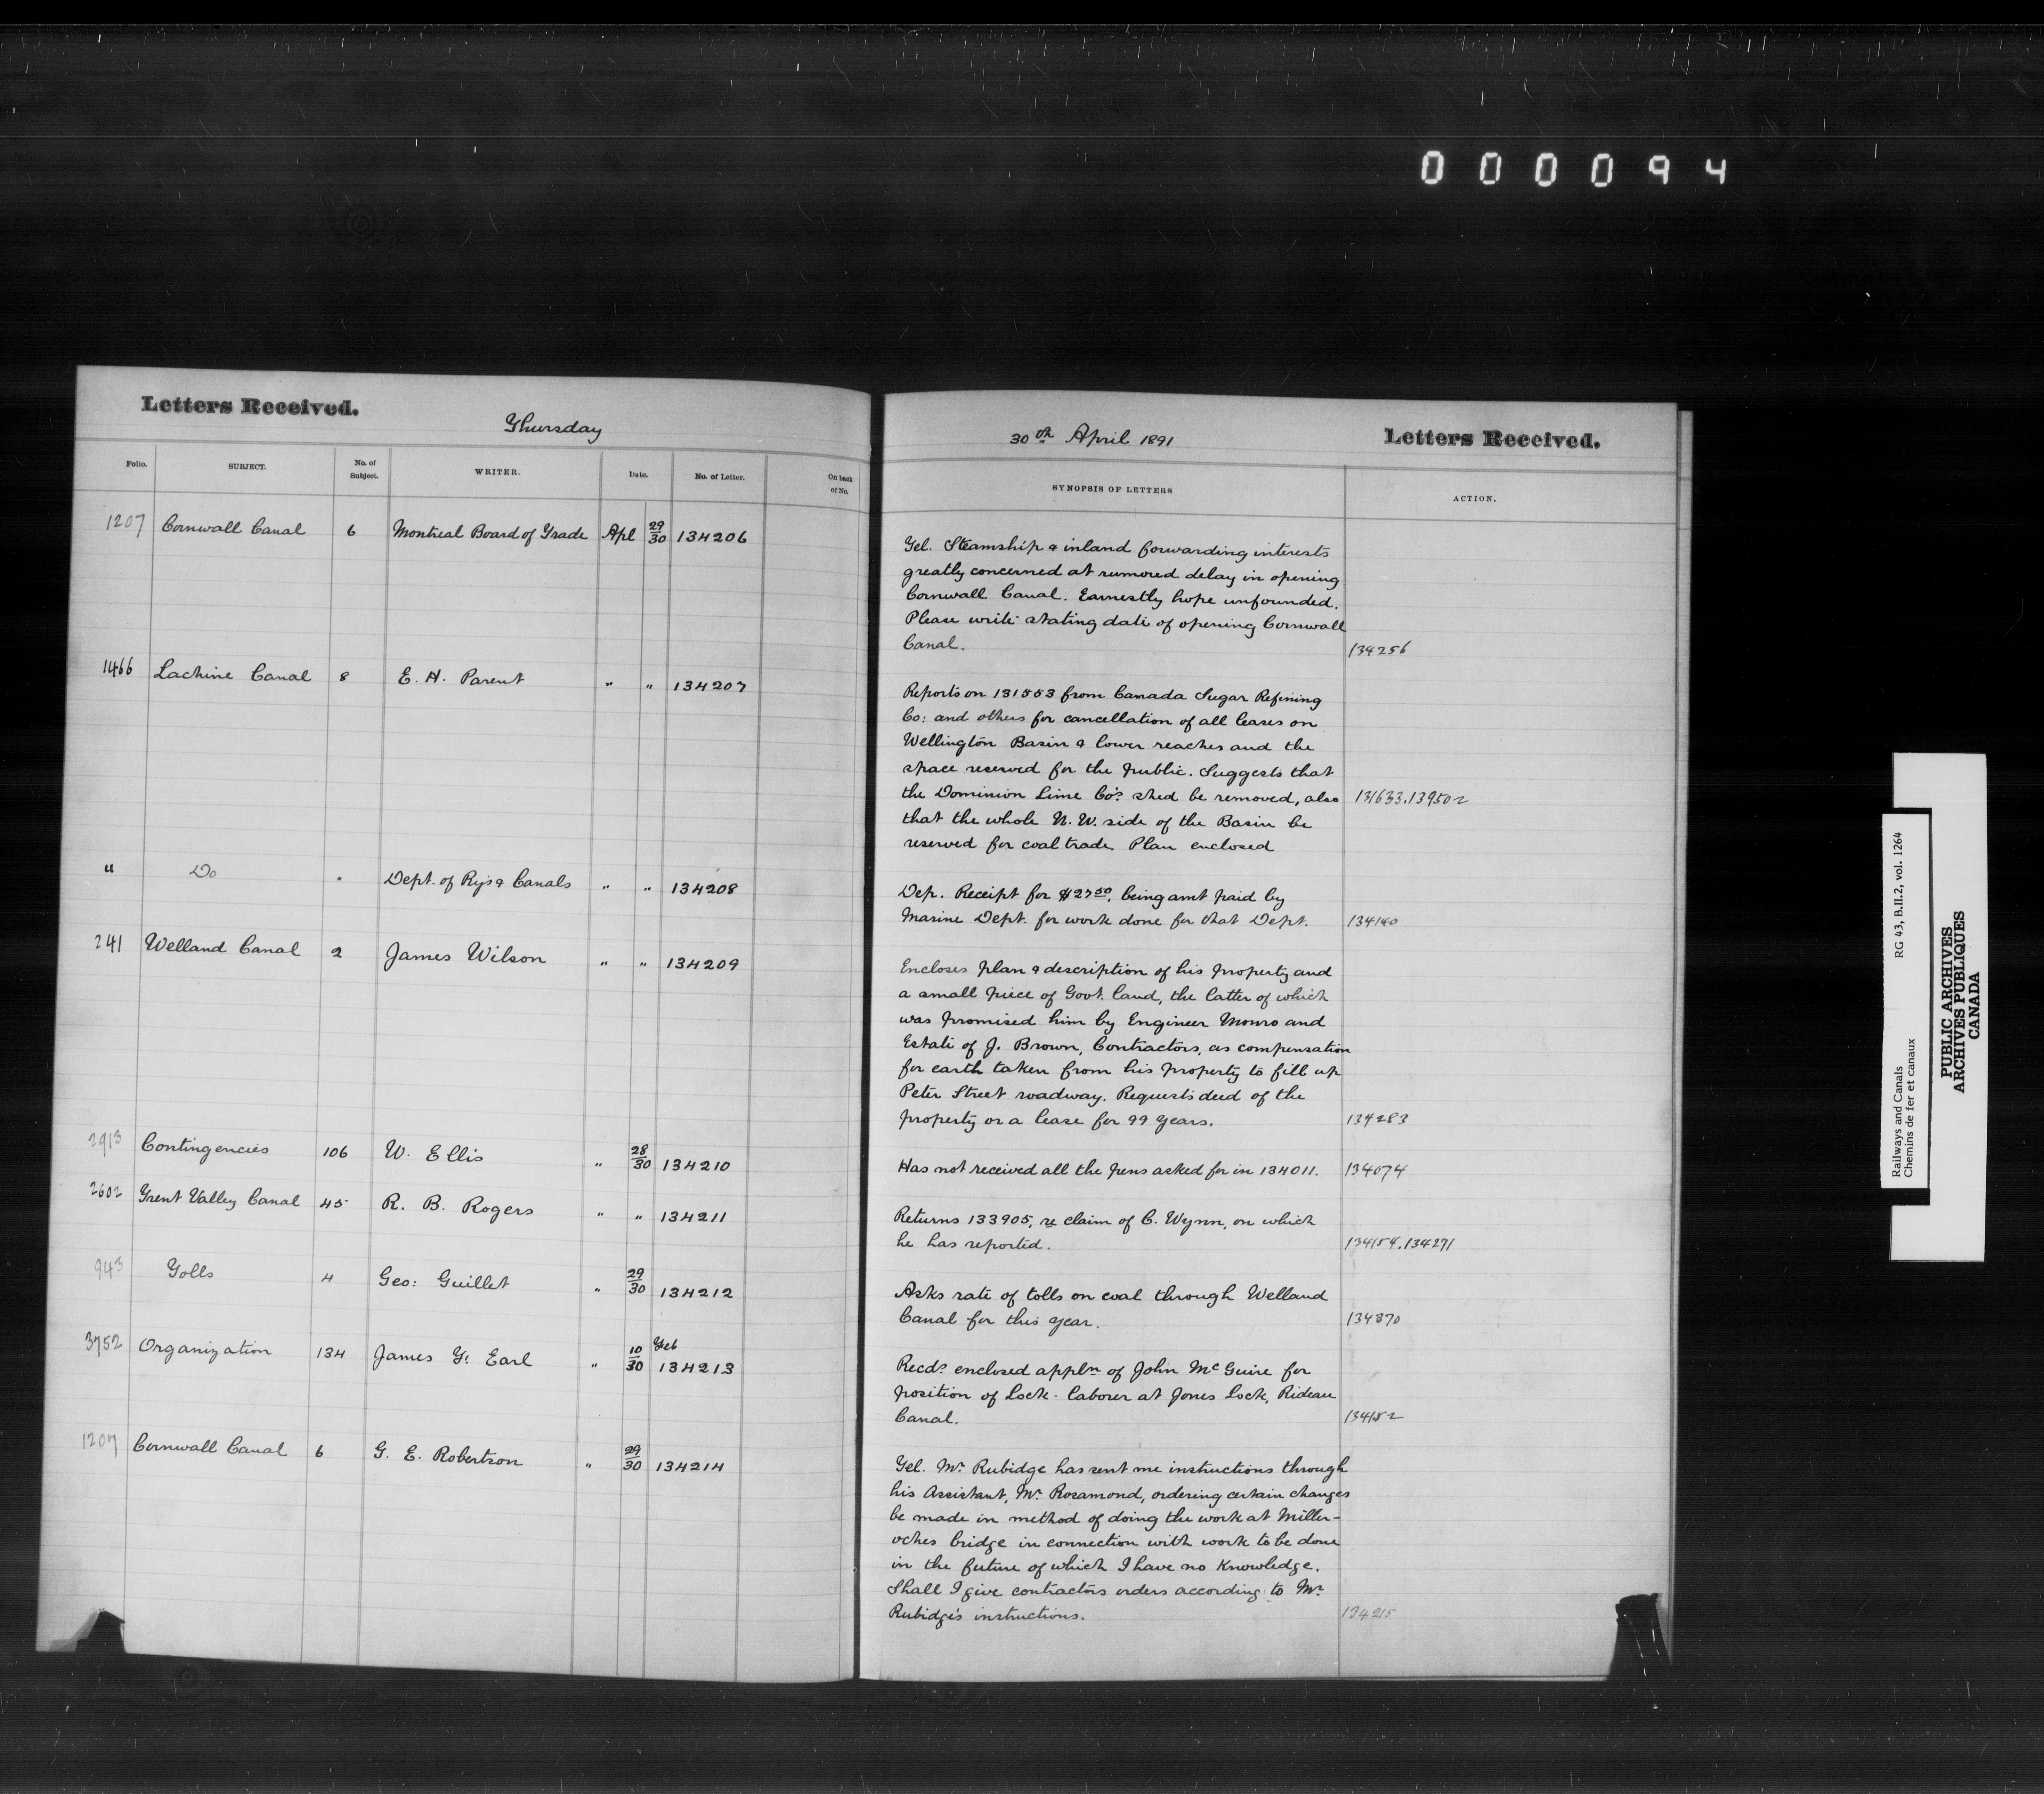 000094
Letters Received.
Thursday
Folio. SUBJECT. No. of Subject. WRITER. Date. No. of Letter. On back of No.
1207 Cornwall Canal 6 Montreal Board of Trade Apl 29/30 134206
1466 Lachine Canal 8 E. H. Parent " " 134207
" Do " Dept. of Rys & Canals " " 134208
241 Welland Canal 2 James Wilson " " 134209
2913 Contingencies 106 W. Ellis " 28/30 134210
2602 Trent Valley Canal 45 R. B. Rogers " " 134211
943 Tolls 4 Geo: Guillet " 29/30 134212
3752 Organization 134 James T. Earl " 10/30 Feb 134213
1207 Cornwall Canal 6 G. E. Robertson " 29/30 134214
30th April 1891
Letters Received.
SYNOPSIS OF LETTERS ACTION.
Tel. Steamship & inland forwarding interests
greatly concerned at rumored delay in opening
Cornwall Canal. Earnestly hope unfounded.
Please write stating date of opening Cornwall
Canal. 134256
Reports on 131553 from Canada Sugar Refining
Co: and others for cancellation of all leases on
Wellington Basin & lower reaches and the
space reserved for the public. Suggests that
the Dominion Lime Co's. shed be removed, also 131633.139502
that the whole N. W. side of the Basin be
reserved for coal trade. Plan enclosed
Dep. Receipt for $27 50, being amt paid by
Marine Dept. for work done for that Dept. 134140
Encloses plan & description of his property and
a small piece of Govt. land, the latter of which
was promised him by Engineer Monro and
Estate of J. Brown, Contractors, as compensation
for earth taken from his property to fill up
Peter Street roadway. Requests deed of the
property or a lease for 99 years. 134283
Has not received all the pens asked for in 134011. 134074
Returns 133905, re claim of C. Wynn, on which
he has reported. 134154.134271
Asks rate of tolls on coal through Welland
Canal for this year. 134370
Recds. enclosed appln. of John McGuire for
position of Lock-laborer at Jones Lock, Rideau
Canal. 134152
Tel. Mr. Rubidge has sent me instructions through
his Assistant, Mr. Rosamond, ordering certain changes
be made in method of doing the work at Miller-
oches bridge in connection with work to be done
in the future of which I have no knowledge.
Shall I give contractors orders according to Mr.
Rubidge's instructions. 134215
RG 43, B.II.2, vol. 1264
Railways and Canals
Chemins de fer et canaux
PUBLIC ARCHIVES
ARCHIVES PUBLIQUES
CANADA